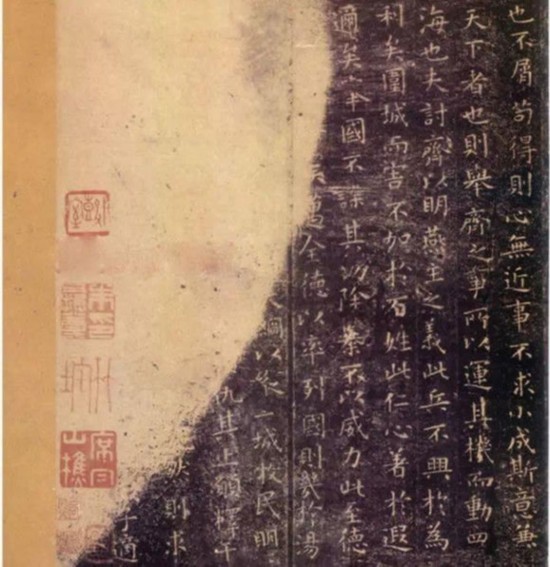 也不屑苟得則心無近事不求小成斯意兼
天下者也則舉齊之事所以運其機而動四
海也夫討齊以明燕主之義此兵不興於為
利矣圍城而害不加於百姓此仁心著於遐
邇矣舉國不謀其功除暴不以威力此至德
矣邁全德以率列國則幾於湯
大綱以縱二城牧民明
仇其上願釋干
然則求
子適
山樵